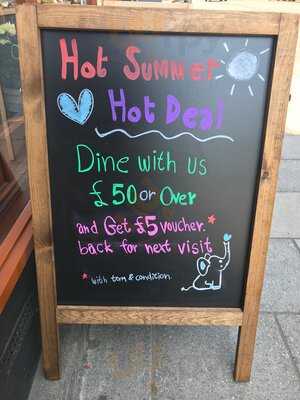 Hot Summer
Hot Deal
Dine with us
£50 or Over
and Get £5 voucher.*
back for next visit
* with term & condition.